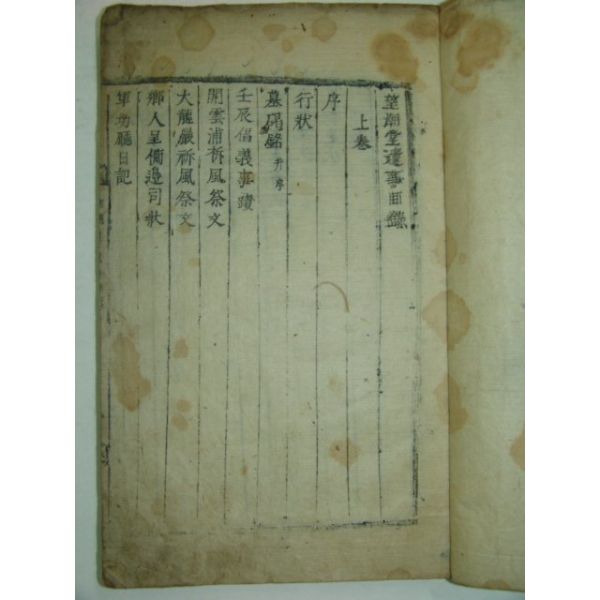 望潮堂遺事目錄
上卷
序
行狀
墓碣銘 幷序
壬辰倡義事蹟
開雲浦祈風祭文
大龍巖祈風祭文
鄕人呈備邊司狀
軍功廳日記